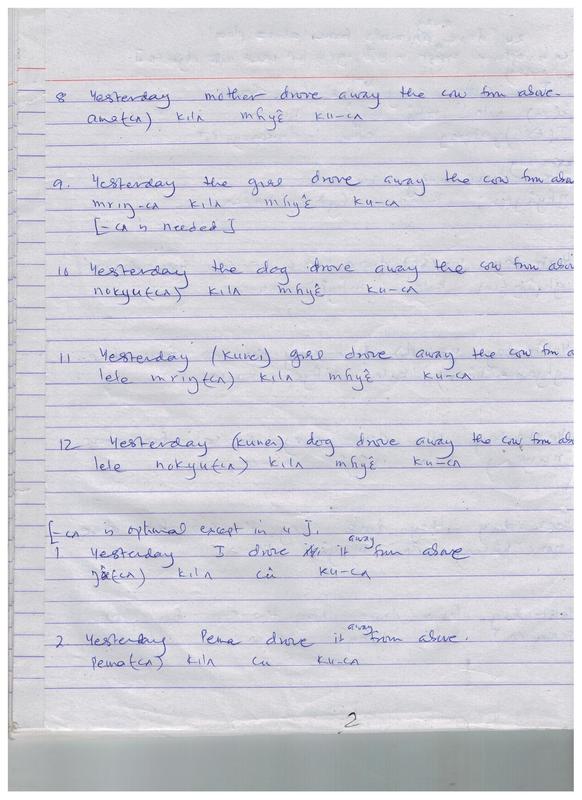 8 Yesterday mother drove away the cow from above.
ama(-cʌ) kilʌ mɦyɛ̂ ku-cʌ
9. Yesterday the girl drove away the cow from abo
mriŋ-cʌ kilʌ mɦyɛ̂ ku-cʌ
[-cʌ is needed]
10 Yesterday the dog drove away the cow from abo
nokyu(-cʌ) kilʌ mɦyɛ̂ ku-cʌ
11 Yesterday (kunei) girl drove away the cow from a
lele mriŋ(-cʌ) kilʌ mɦyɛ̂ ku-cʌ
12 Yesterday (kunei) dog drove away the cow from ab
lele nokyu(-cʌ) kilʌ mɦyɛ̂ ku-cʌ
[-cʌ is optional except in 4].
1 Yesterday I drove it away from above
(-cʌ) kilʌ cû ku-cʌ
2 Yesterday Pema drove it away from above.
Pema(-cʌ) kilʌ cu ku-cʌ
2